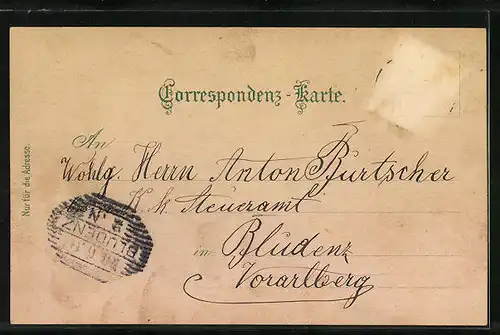 Correspondenz - Karte.
An
Wohlg. Herrn Anton Burtscher
K. k. Steueramt
in Bludenz
Vorarlberg
Nur für die Adresse.
BLUDENZ